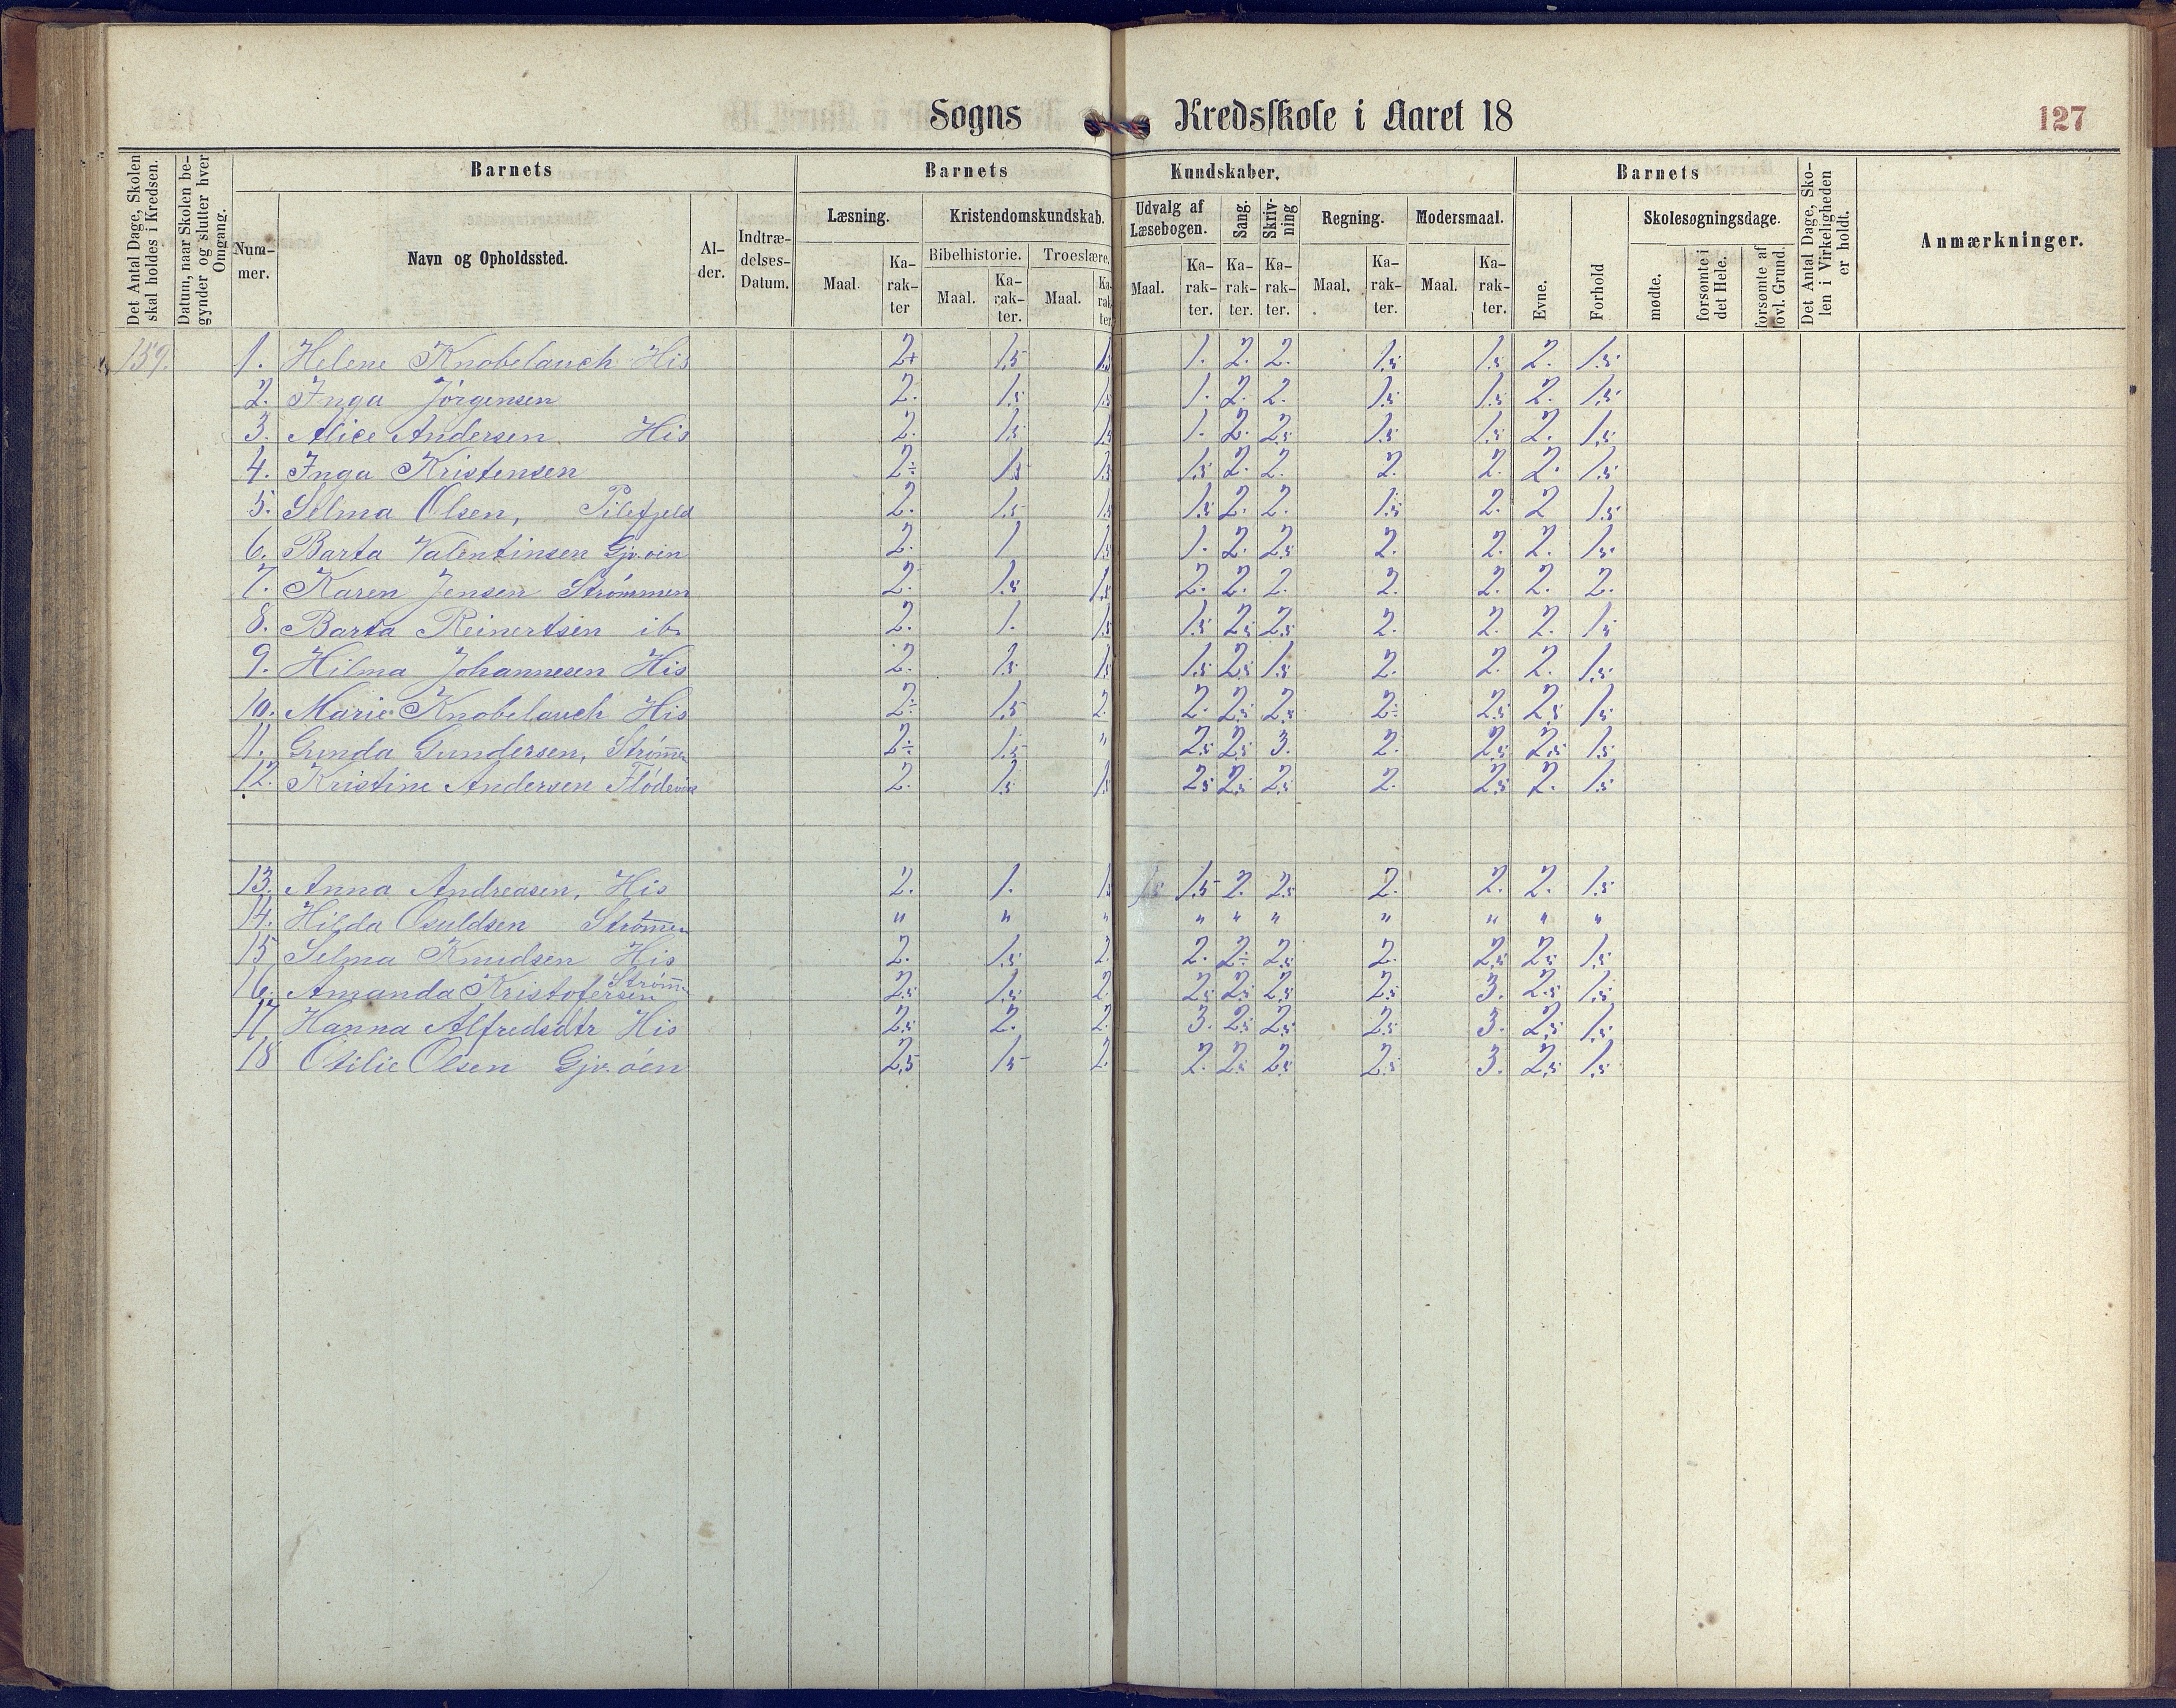 Sogns Kredsskole i Aaret 18 127
Det Antal Dage, Skolen skal holdes i Kredsen.
Datum, naar Skolen begynder og slutter hver Omgang.
Barnets Barnets Kundskaber. Barnets
Det Antal Dage, Skolen i Virkeligheden er holdt.
Anmærkninger.
Nummer. Navn og Opholdssted. Alder. Indtrædelses-Datum.
Læsning. Kristendomskundskab. Udvalg af Læsebogen. Sang. Skrivning Regning. Modersmaal. Evne. Forhold Skolesøgningsdage.
Bibelhistorie. Troeslære.
Maal. Karakter Maal. Karakter. Maal. Karakter. Maal. Karakter. Karakter. Karakter. Maal. Karakter. Maal. Karakter. mødte. forsømte i det Hele. forsømte af lovl. Grund.
159. 1. Helene Knobelauch His 2+ 1.5 1.5 1. 2. 2. 1.5 1.5 2. 1.5
2. Inga Jörgensen 2. 1.5 1.5 1. 2. 2. 1.5 1.5 2. 1.5
3. Alice Andersen His 2. 1.5 1.5 1. 2. 2.5 1.5 1.5 2. 1.5
4. Inga Kristensen 2÷ 1.5 1.5 1.5 2. 2. 2. 2. 2. 1.5
5. Selma Olsen, Pilefjeld 2. 1.5 1.5 1.5 2. 2. 1.5 2. 2 1.5
6. Barta Valentinsen Gjv.öin 2. 1 1.5 1. 2. 2.5 2. 2. 2. 1.5
7. Karen Jensen Strömmen 2. 1.5 1.5 2. 2. 2. 2. 2. 2. 2.
8. Barta Reinertsen ib. 2. 1. 1.5 1.5 2.5 2.5 2. 2. 2. 1.5
9. Hilma Johannesen His 2. 1.5 1.5 1.5 2.5 1.5 2. 2. 2. 1.5
10. Marie Knobelauch His 2÷ 1.5 2. 2. 2.5 2.5 2÷ 2.5 2.5 1.5
11. Gunda Gundersen, Strömen 2÷ 1.5 " 2.5 2.5 3. 2. 2.5 2.5 1.5
12. Kristine Andersen 2. 1.5 1.5 2.5 2.5 2.5 2. 2.5 2. 1.5
13. Anna Andreasen, His 2. 1. 1.5 1.5 1.5 2. 2.5 2. 2. 2. 1.5
14. Hilda Osuldsen Strömen " " " " " " " " " "
15 Selma Knudsen His 2. 1.5 2. 2. 2÷ 2.5 2. 2.5 2.5 1.5
16. Amanda Kristofersen Strömn 2.5 1.5 2. 2.5 2.5 2.5 2.5 3. 2.5 1.5
17 Hanna Alfredsdtr His 2.5 2. 2. 3. 2.5 2.5 2.5 3. 2.5 1.5
18 Otilie Olsen Gjv.öen 2.5 1.5 2. 2. 2.5 2.5 2.5 3. 2.5 1.5